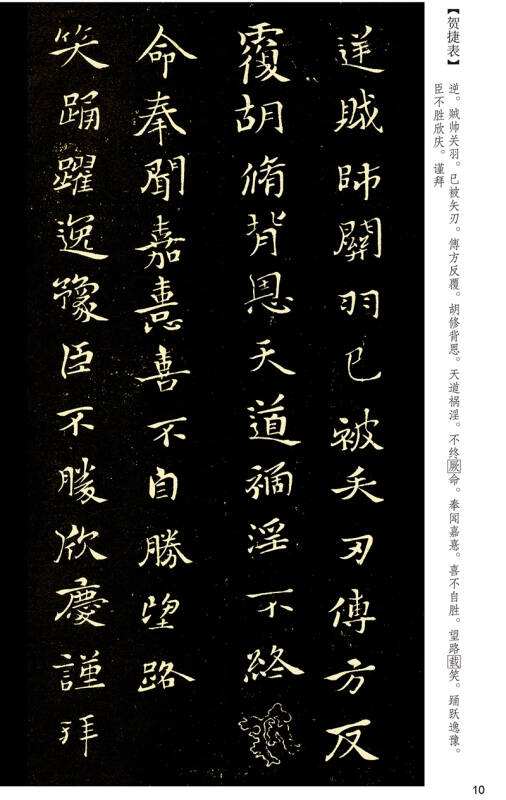 【贺捷表】
逆。贼帅关羽。已被矢刃。傅方反覆。胡修背恩。天道祸淫。不终厥命。奉闻嘉憙。喜不自胜。望路载笑。踊跃逸豫。
臣不胜欣庆。谨拜
逆賊帥關羽已被矢刃傅方反
覆胡脩背恩天道禍淫不終
命奉聞嘉憙喜不自勝望路
笑踊躍逸豫臣不勝欣慶謹拜
10